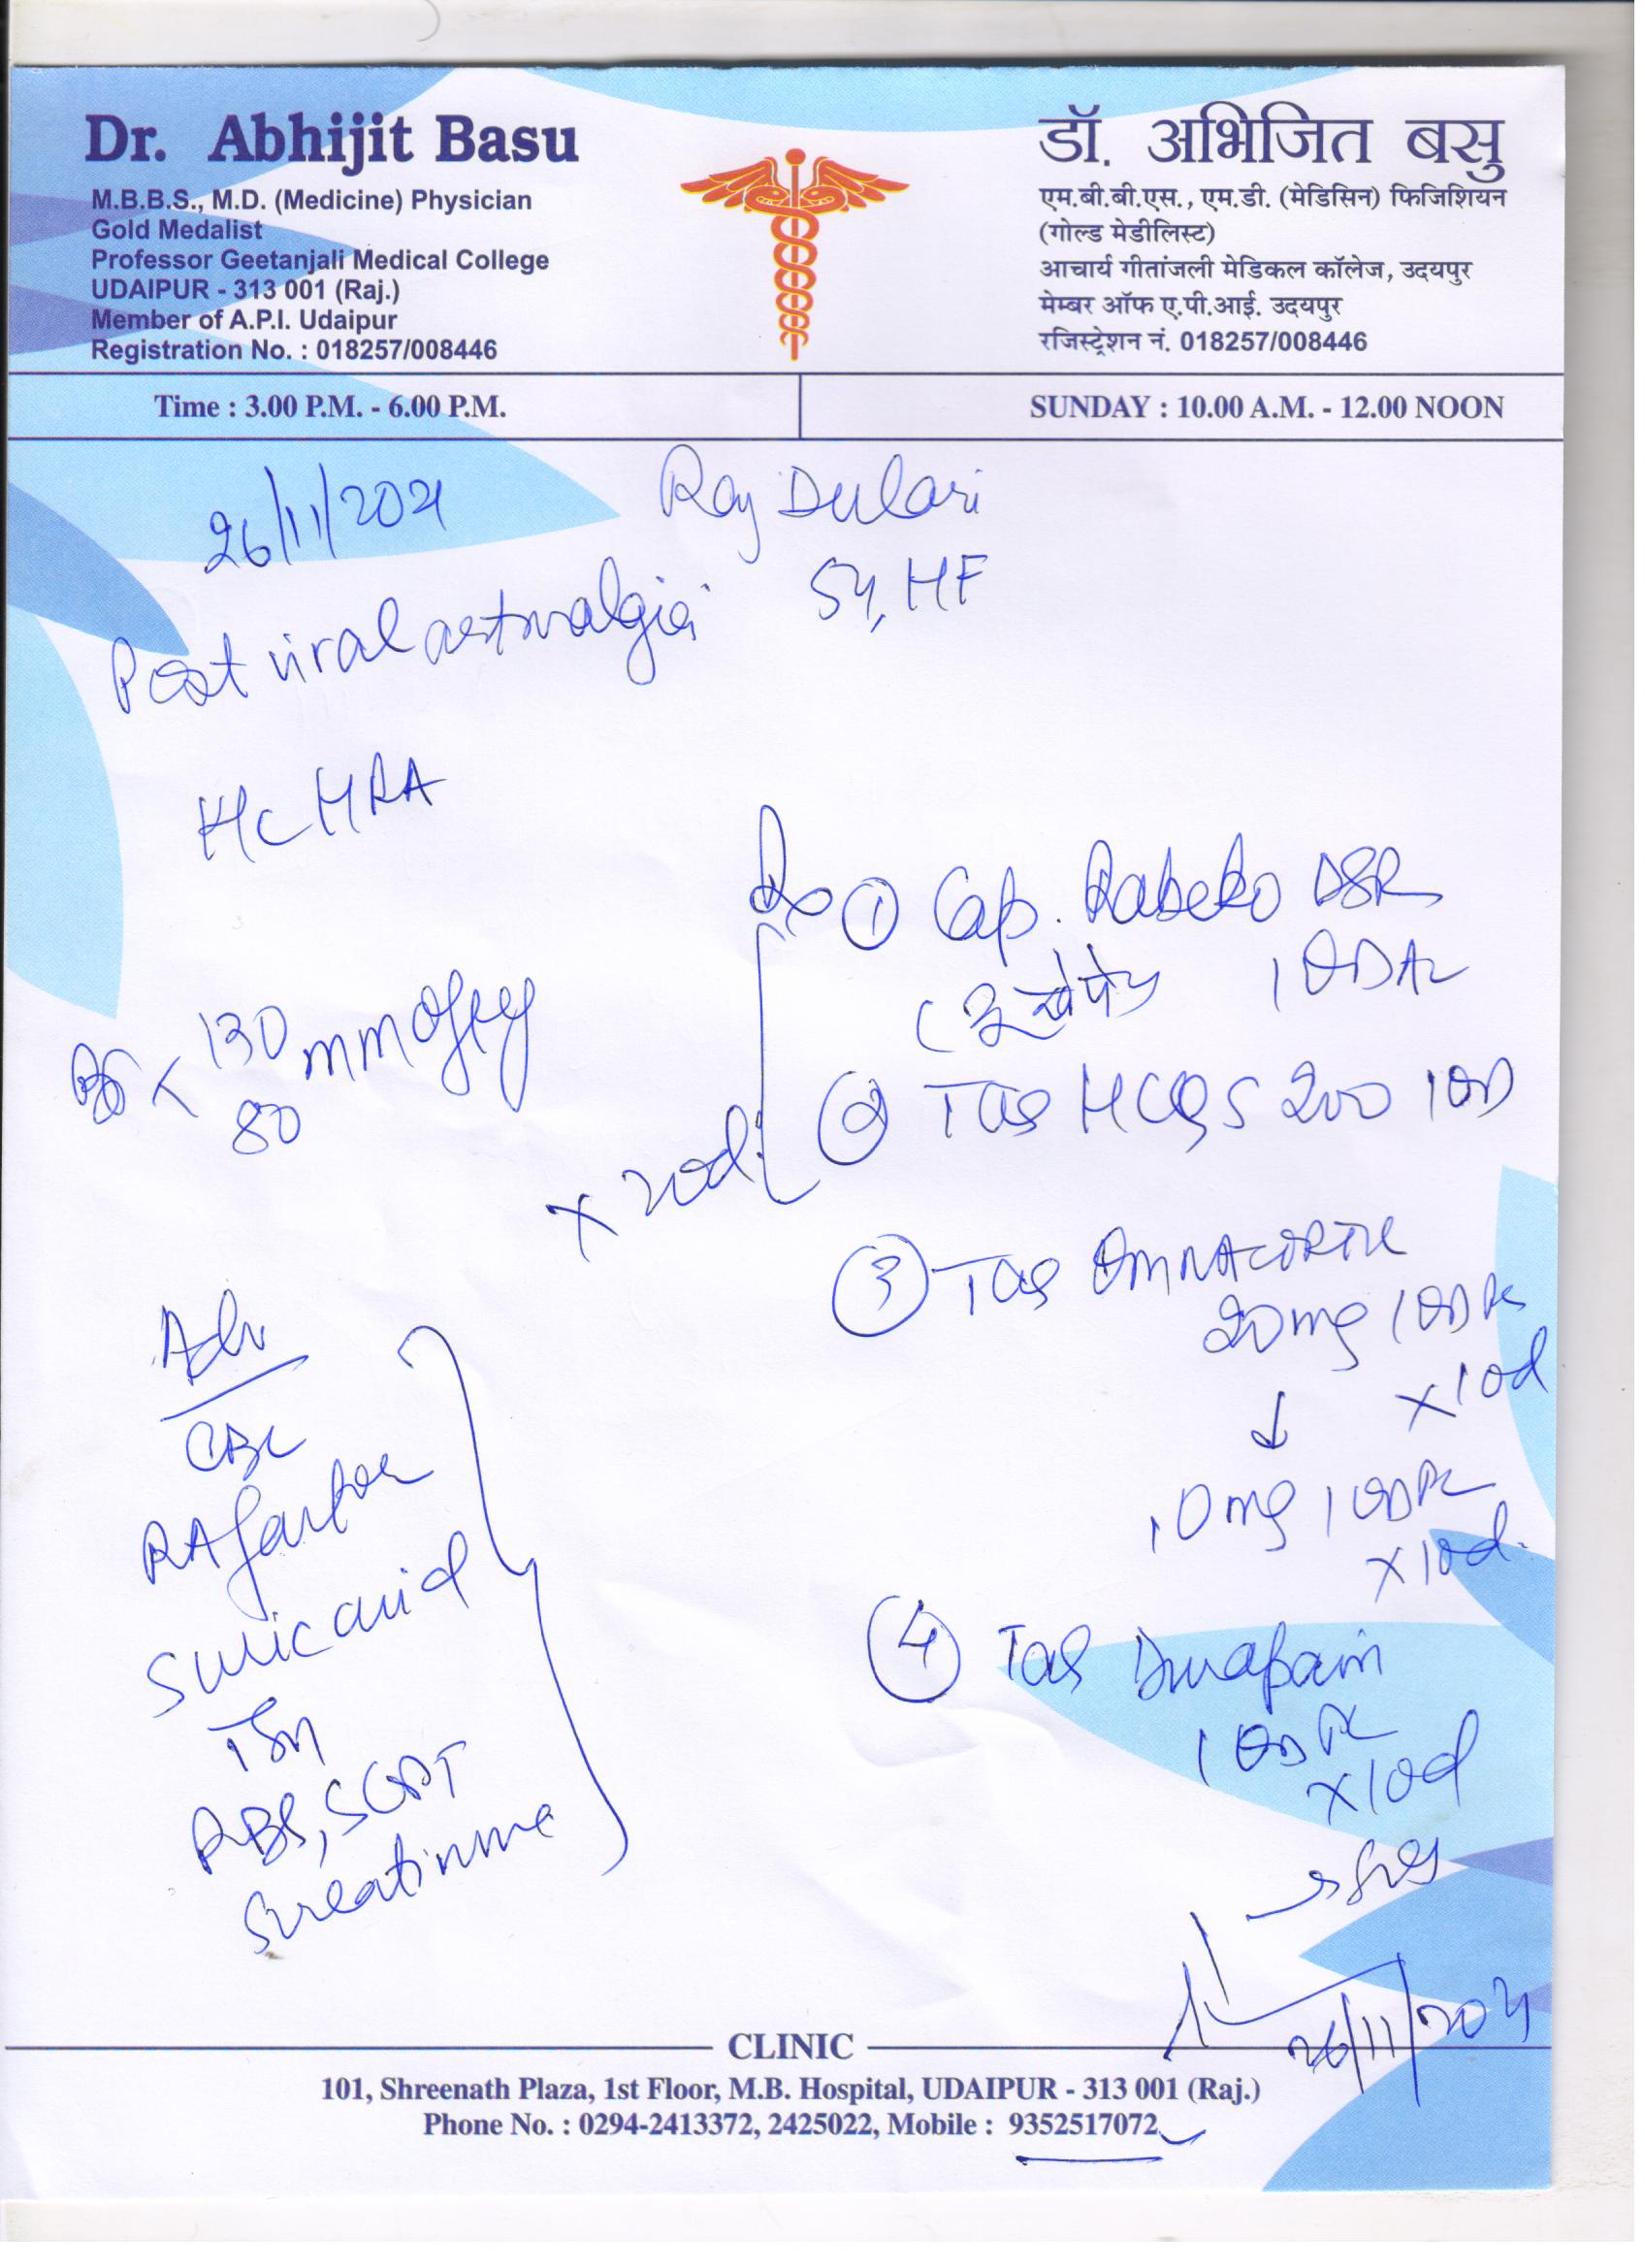 Dr. Abhijit Basu
M.B.B.S., M.D. (Medicine) Physician
Gold Medalist
Professor Geetanjali Medical College
UDAIPUR - 313 001 (Raj.)
Member of A.P.I. Udaipur
Registration No. : 018257/008446
डॉ. अभिजित बसु
एम.बी.बी.एस., एम.डी. (मेडिसिन) फिजिशियन
(गोल्ड मेडीलिस्ट)
आचार्य गीतांजली मेडिकल कॉलेज, उदयपुर
मेम्बर ऑफ ए.पी.आई. उदयपुर
रजिस्ट्रेशन नं. 018257/008446
Time : 3.00 P.M. - 6.00 P.M.
SUNDAY : 10.00 A.M. - 12.00 NOON
26/11/2021
Raj Dulari
54, HF
Post viral
130
mm of Hg
80
Rx
① Cap. DSR
1 OD AC
② Tab HCQS 200 1 OD
x 20d
③ Tab OMNACORTIL
20mg 1 OD PC
x 10d
↓
10 mg 1 OD PC
x 10d.
④ Tab Durapain
1 OD PC
x 10d
Adv
CBC
RA factor
S uric acid
TSH
RBS, SGPT
S creatinine
26/11/2021
CLINIC
101, Shreenath Plaza, 1st Floor, M.B. Hospital, UDAIPUR - 313 001 (Raj.)
Phone No. : 0294-2413372, 2425022, Mobile : 9352517072